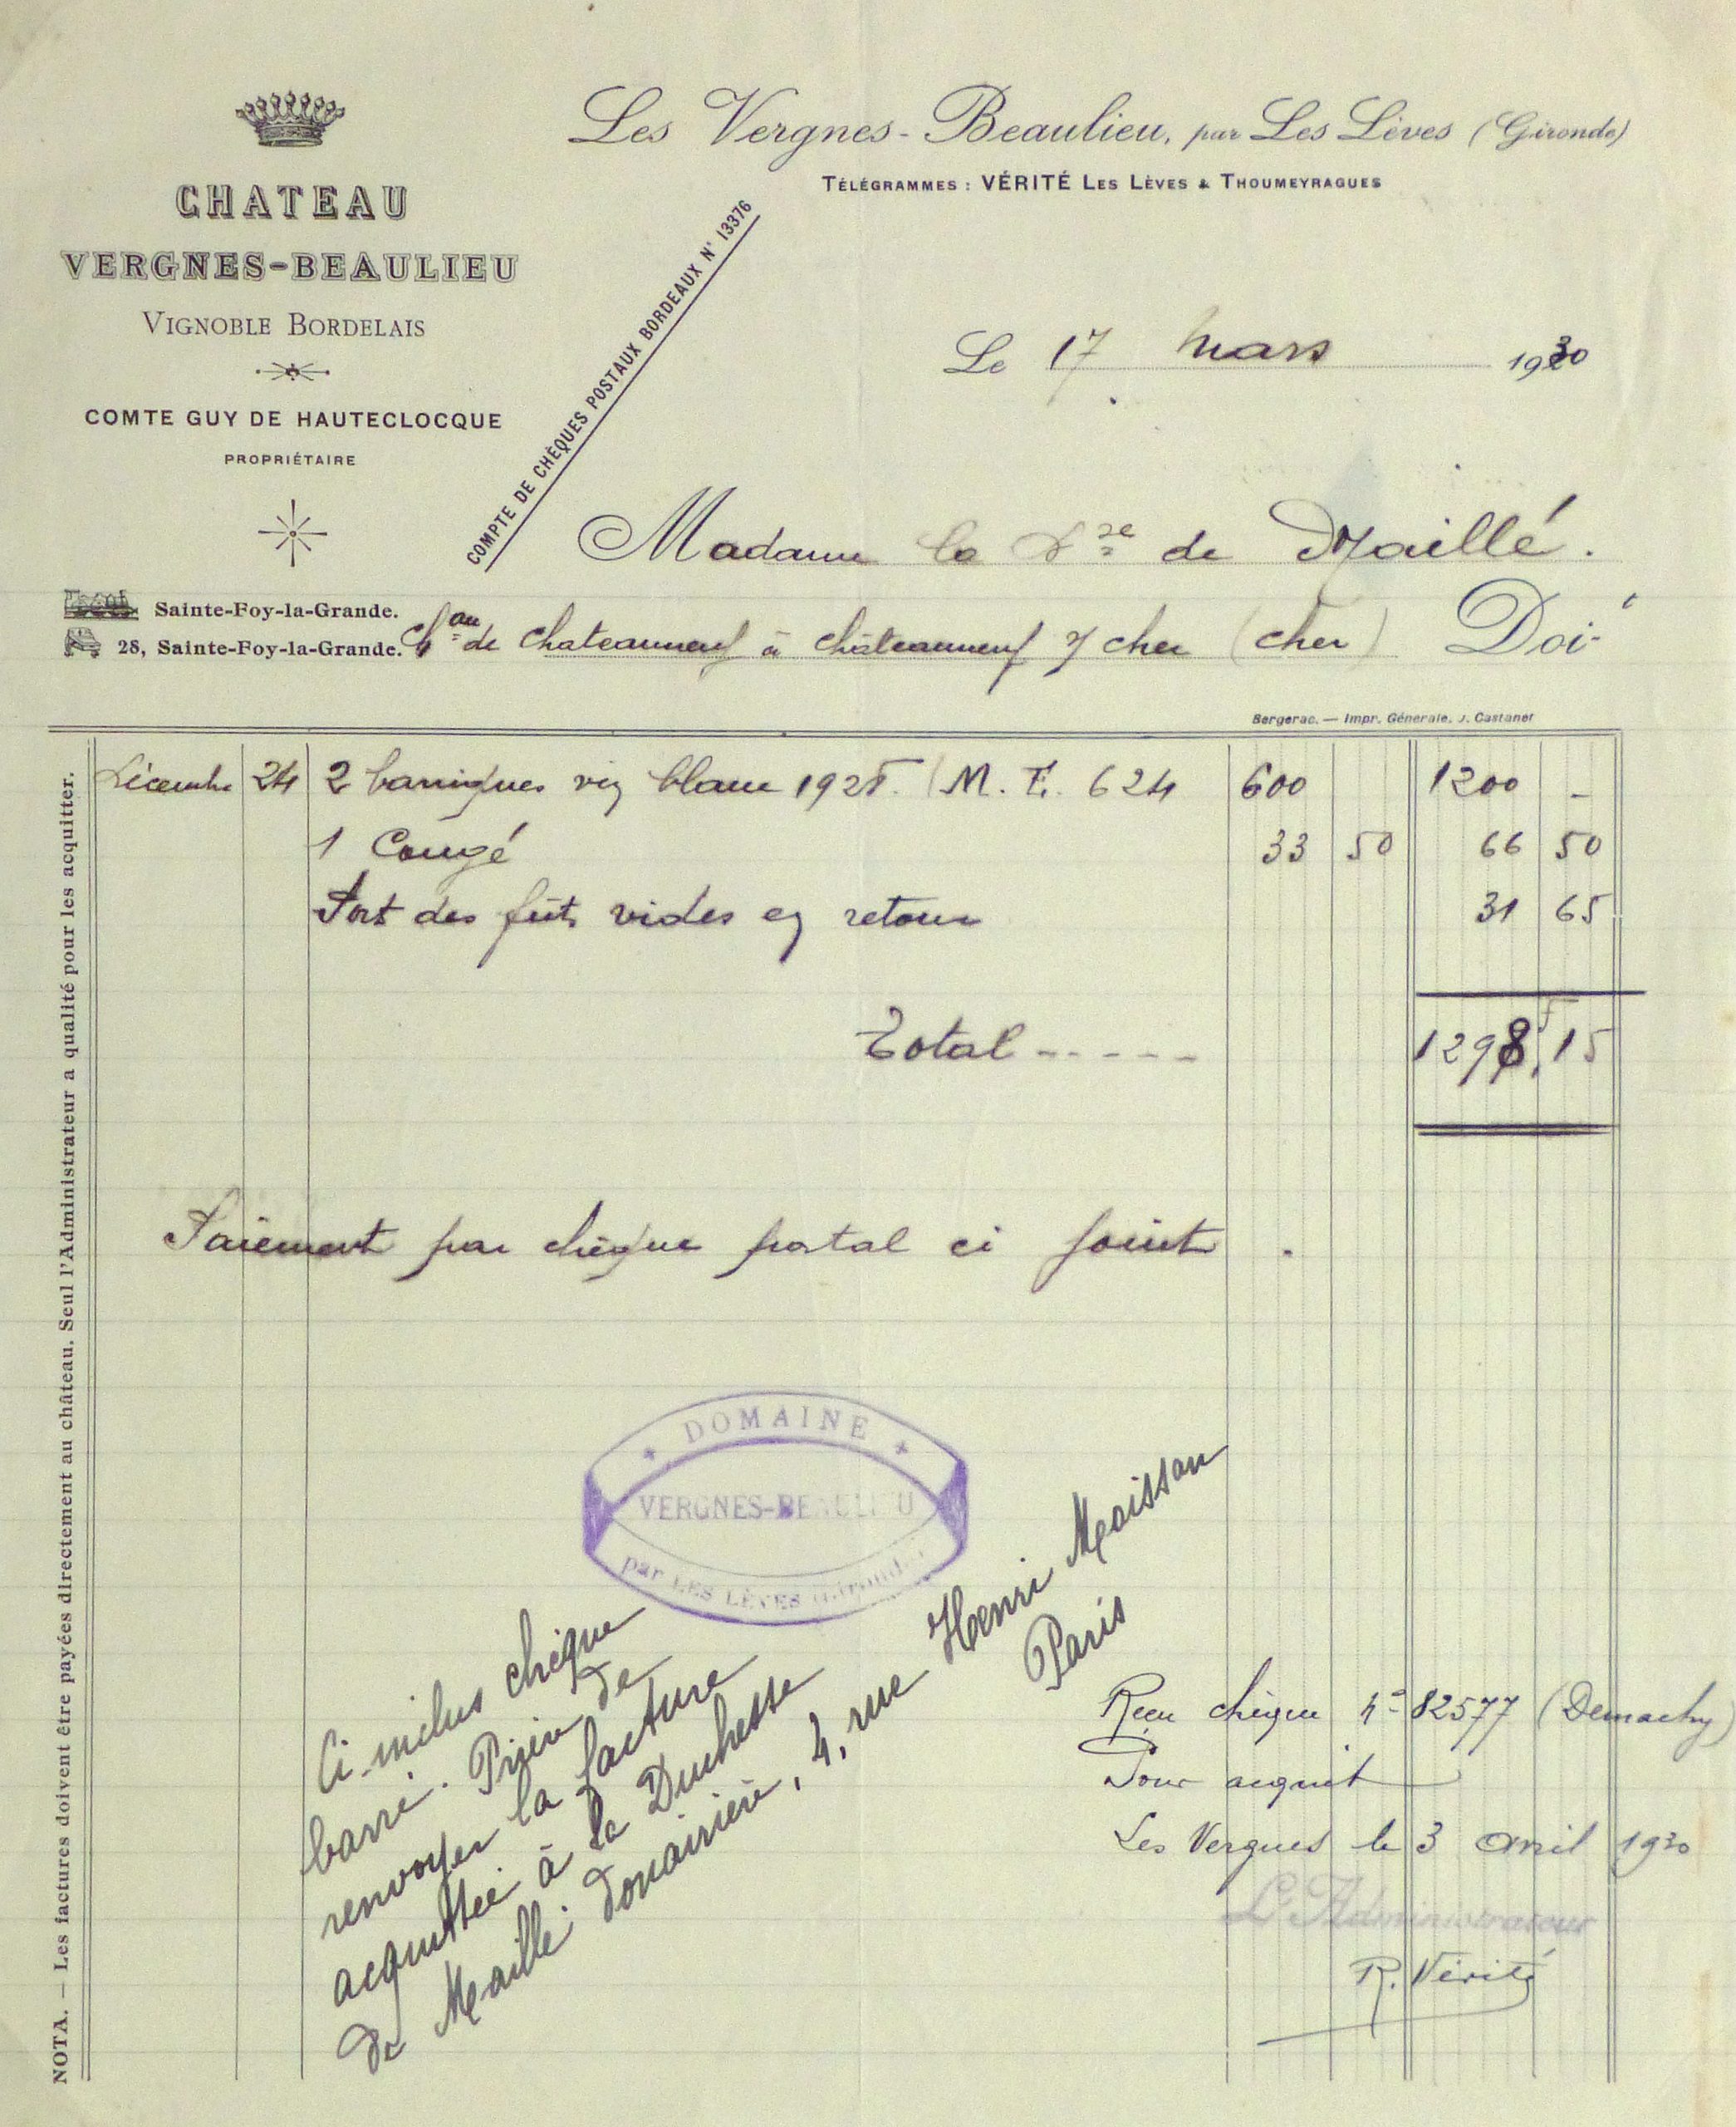 CHATEAU
VERGNES-BEAULIEU
VIGNOBLE BORDELAIS
COMTE GUY DE HAUTECLOCQUE
PROPRIÉTAIRE
Sainte-Foy-la-Grande.
28, Sainte-Foy-la-Grande.
COMPTE DE CHÈQUES POSTAUX BORDEAUX N° 13376
Les Vergnes-Beaulieu, par Les Lèves (Gironde)
TÉLÉGRAMMES : VÉRITÉ LES LÈVES & THOUMEYRAGUES
Le 17 mars 1930
Madame la Dsse de Maillé.
Chau de Chateauneuf à Châteauneuf s/ cher (cher) Doit
Bergerac. — Impr. Générale, J. Castanet
Décembre 24 2 barriques vin blanc 1928. (M. E. 624 600 1200 -
1 Congé 33 50 66 50
Port des fûts vides en retour 31 65
Total ----- 1298f,15
Paiement par chèque postal ci joint.
DOMAINE
VERGNES-BEAULIEU
par LES LÈVES (Gironde)
Ci-inclus chèque
barré. Prière de
renvoyer la facture
acquittée à la Duchesse
de Maillé douairière, 4, rue Henri Moissan
Paris
Reçu chèque n° 82577 (Demachy)
Pour acquit
Les Vergnes le 3 avril 1930
L'Administrateur
R. Vérité
NOTA. — Les factures doivent être payées directement au château. Seul l'Administrateur a qualité pour les acquitter.